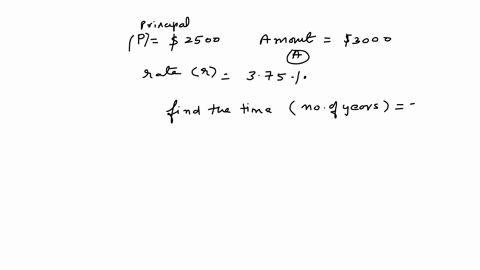 Principal
(P) = $2500 Amount = $3000
(A)
rate (r) = 3.75%
find the time (no. of years) = -